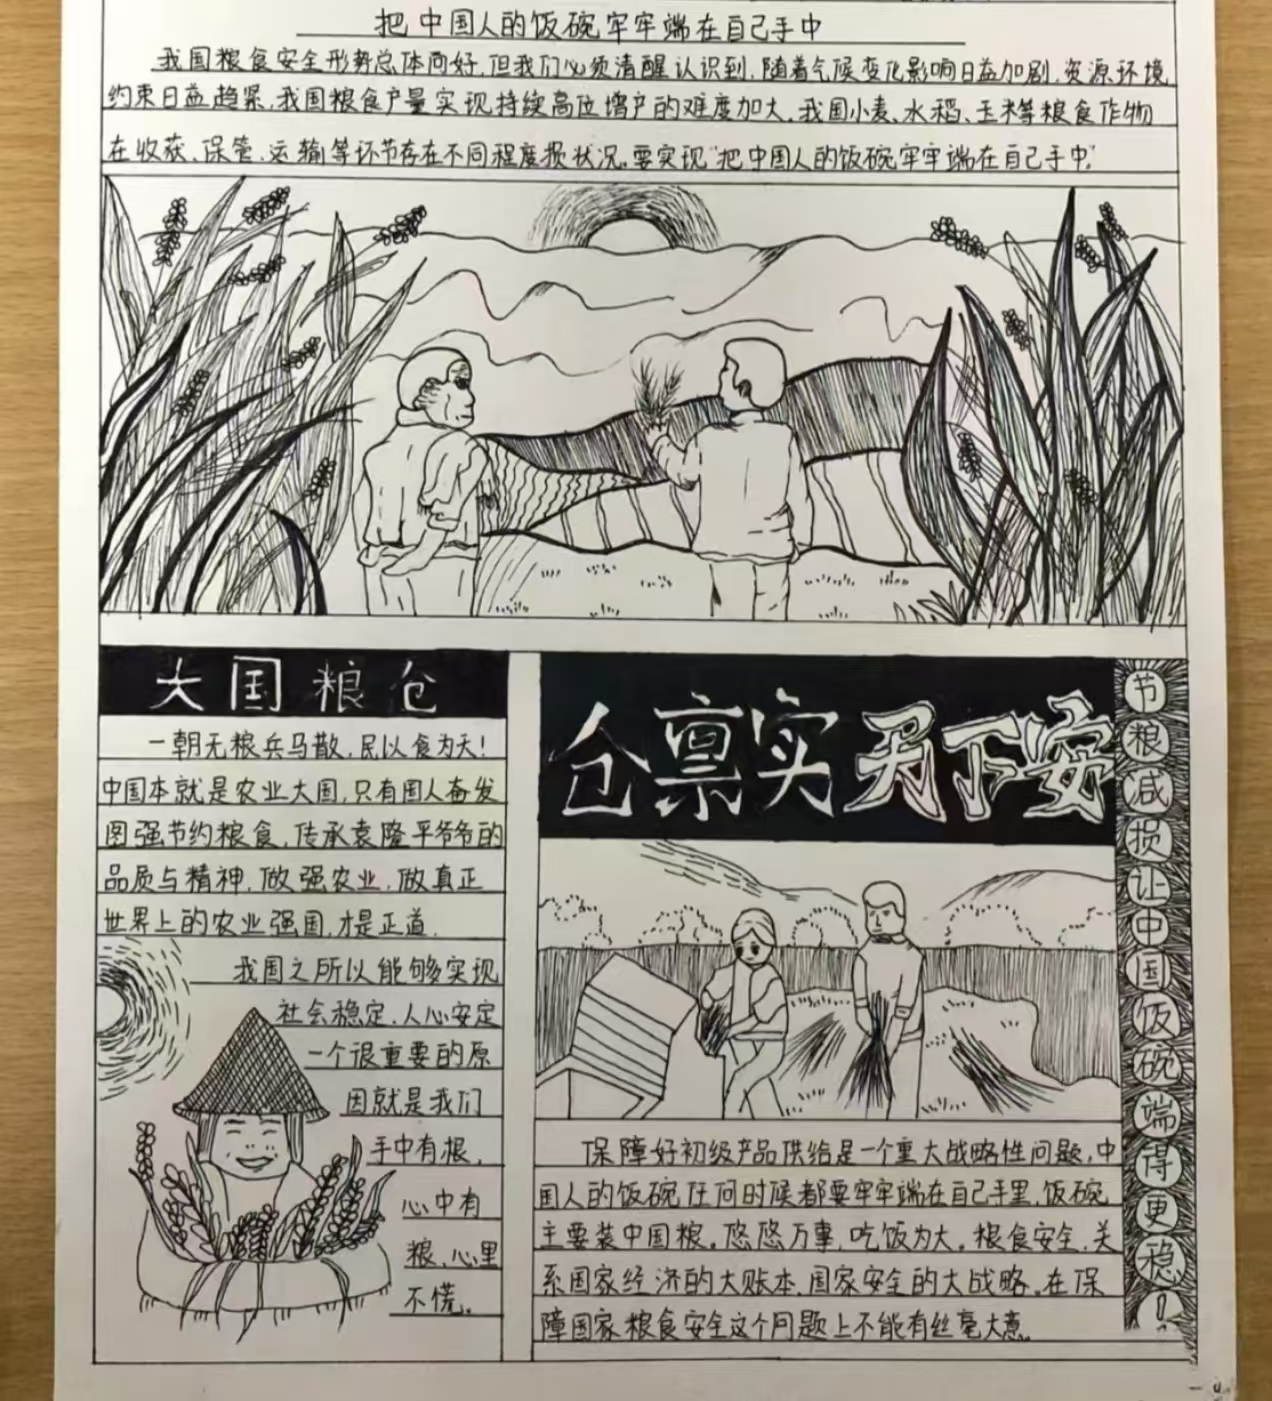 把中国人的饭碗牢牢端在自己手中
我国粮食安全形势总体向好,但我们必须清醒认识到,随着气候变化影响日益加剧,资源环境
约束日益趋紧,我国粮食产量实现持续高位增产的难度加大。我国小麦、水稻、玉米等粮食作物
在收获、保管、运输等环节存在不同程度损状况。要实现“把中国人的饭碗牢牢端在自己手中”
大国粮仓
一朝无粮兵马散,民以食为天!
中国本就是农业大国,只有国人奋发
图强节约粮食,传承袁隆平爷爷的
品质与精神,做强农业,做真正
世界上的农业强国,才是正道.
我国之所以能够实现
社会稳定,人心安定
一个很重要的原
因就是我们
手中有根,
心中有
粮,心里
不慌。
仓禀实 天下安
保障好初级产品供给是一个重大战略性问题,中
国人的饭碗任何时候都要牢牢端在自己手里,饭碗
主要装中国粮。悠悠万事,吃饭为大。粮食安全,关
系国家经济的大账本,国家安全的大战略。在保
障国家粮食安全这个问题上不能有丝毫大意。
节粮减损让中国饭碗端得更稳!